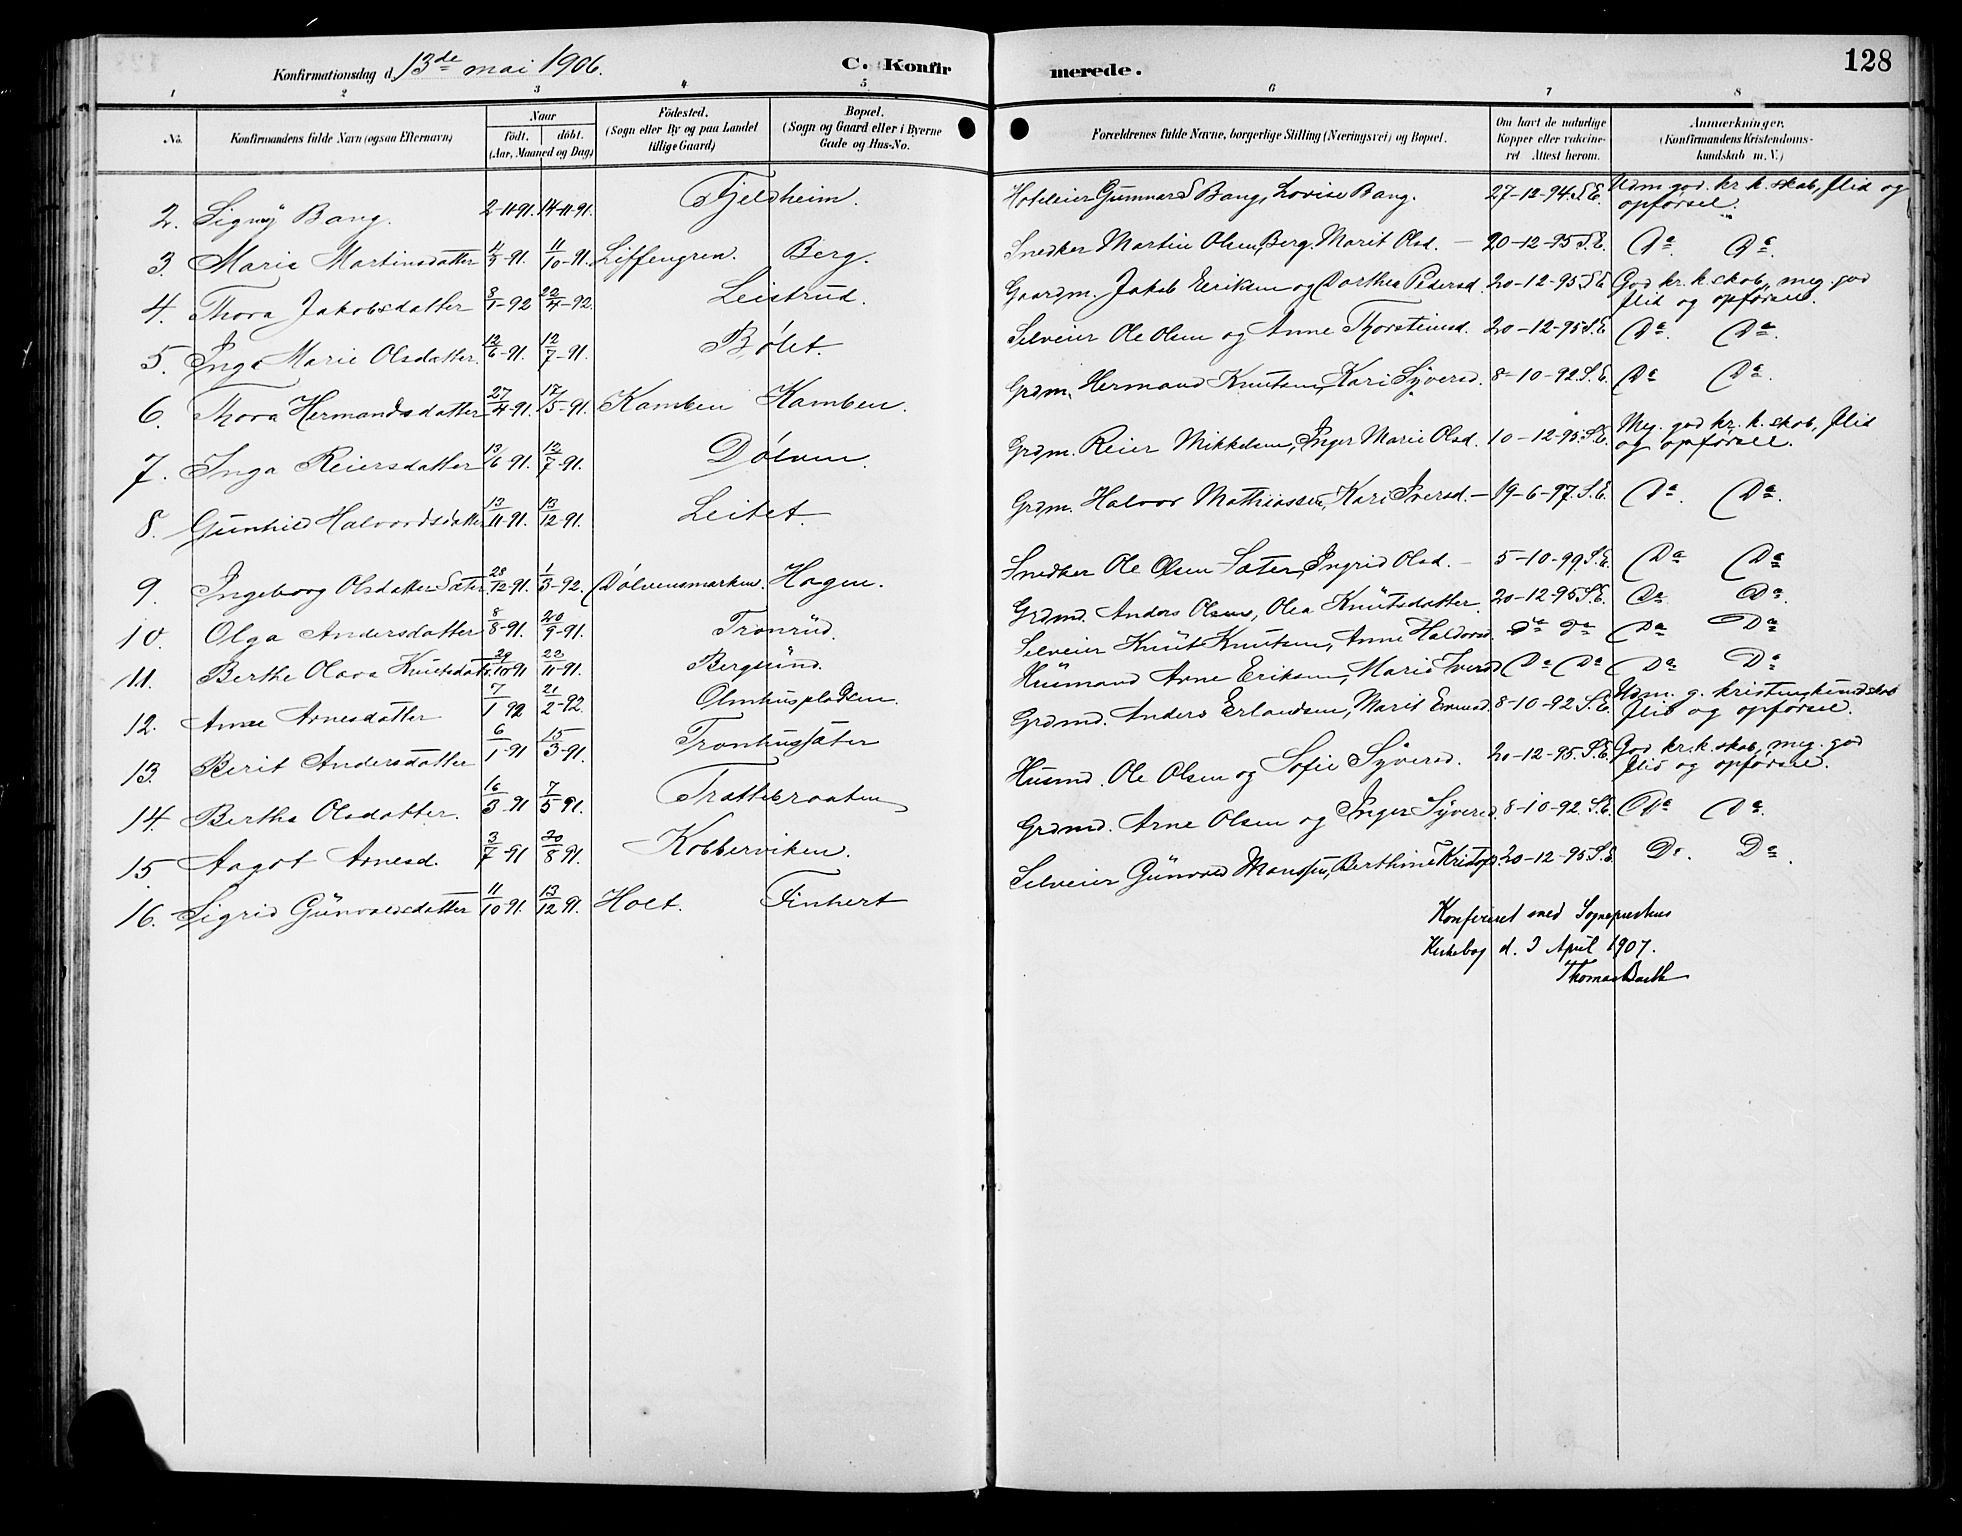 Konfirmationsdag d. 13de mai 1906. C. Konfirmerede. 128
1 2 3 4 5 6 7 8
No. Konfirmandens fulde Navn (ogsaa Efternavn) Naar født. døbt. (Aar, Maaned og Dag) Fødested. (Sogn eller By og paa Landet tillige Gaard) Bopæl. (Sogn og Gaard eller i Byerne Gade og Hus-No. Forældrenes fulde Navne, borgerlige Stilling (Næringsvei) og Bopæl. Om havt de naturlige Kopper eller vakcineret Attest herom. Anmærkninger. (Konfirmandens Kristendomskundskab m. V.)
2. Signy Bang. 2-11-91. 14-11-91. Fjeldheim. Hoteleier Gunnar S Bang, Lovise Bang. 27-12-94. S.E. Udm. god. kr. k. skab, flid og opførsel.
3. Marie Martinsdatter 4/3-91. 11/10-91. Liffengren. Berg. Snedker Martin Olsen, Berg. Marit Olsd. — 20-12-95 S.E. Do. Do.
4. Thora Jakobsdatter 8/1-92 22/4-92. Leistrud. Gaardm. Jakob Eriksen og Dorthea Pedersd. 20-12-95 S.E. God kr. k. skab, meg. god flid og opførsel.
5. Inga Marie Olsdatter. 12/6-91. 12/7-91. Bølet. Selveier Ole Olsen og Anne Thorsteinsd. 20-12-95 S.E. Do. Do.
6. Thora Hermandsdatter 27/4-91. 17/5-91. Kamben Kamben. Grdm. Hermand Knutsen, Kari Syversd. 8-10-92. S.E. Do Do.
7. Inga Reiersdatter 13/6-91. 12/7-91. Dølven. Grdm. Reier Mikkelsen, Inger Marie Olsd. 10-12-95. S.E. Meg. god kr. k. skab, flid og opførsel.
8. Gunhild Halvordsdatter 13/11-91. 13/12-91. Leitet. Grdm. Halvor Mathiassen, Kari Iversd. — 19-6-97. S.E. Do. Do.
9. Ingeborg Olsdatter Sæter 28/12-91. 1/3-92. Dølvensmarken. Hagen. Snedker Ole Olsen Sæter, Ingrid Olsd. — 5-10-99. S.E. Do Do
10. Olga Andersdatter 8/8-91. 20/9-91. Tronrud. Grdmd. Anders Olsen, Olea Knutsdatter. 20-12-95 S.E. Do. Do.
11. Berthe Olava Knutsdat. 29/10-91 22/11-91. Bergsund. Selveier Knut Knutsen, Anne Haldorsd. Do Do Do Do
12. Anne Arnesdatter 7/1 92 21/2-92. Olmhuspladsen. Husmand Arne Eriksen, Marie Iversd Do Do Do Do
13. Berit Andersdatter 6/1-91 15/3-91. Tronhussæter Grdmd. Anders Erlandsen, Marit 8-10-92 S.E. Udm. g. kristingkundskab flid og opførsel.
14. Bertha Olsdatter. 16/3-91 7/5 91. Trættebraaten Husmd. Ole Olsen og Sofie Syversd. 20-12-95. S.E. God kr. k. skab, meg. god flid og opførsel.
15. Aagot Arnesd. 3/7-91 30/8 91. Kobberviken. Grdmd. Arne Olsen og Inger Syversd. 8-10-92. S.E. Do Do.
16. Sigrid Gunvaldsdatter 11/10-91. 13/12 91. Holt. Finhert Selveier Gunvald Monssen, Berthine Kristofs. 20-12-95 S.E. Do. Do.
Konfereret med Sogneprestens
Kirkebog d. 3 April 1907.
Thomas Barth